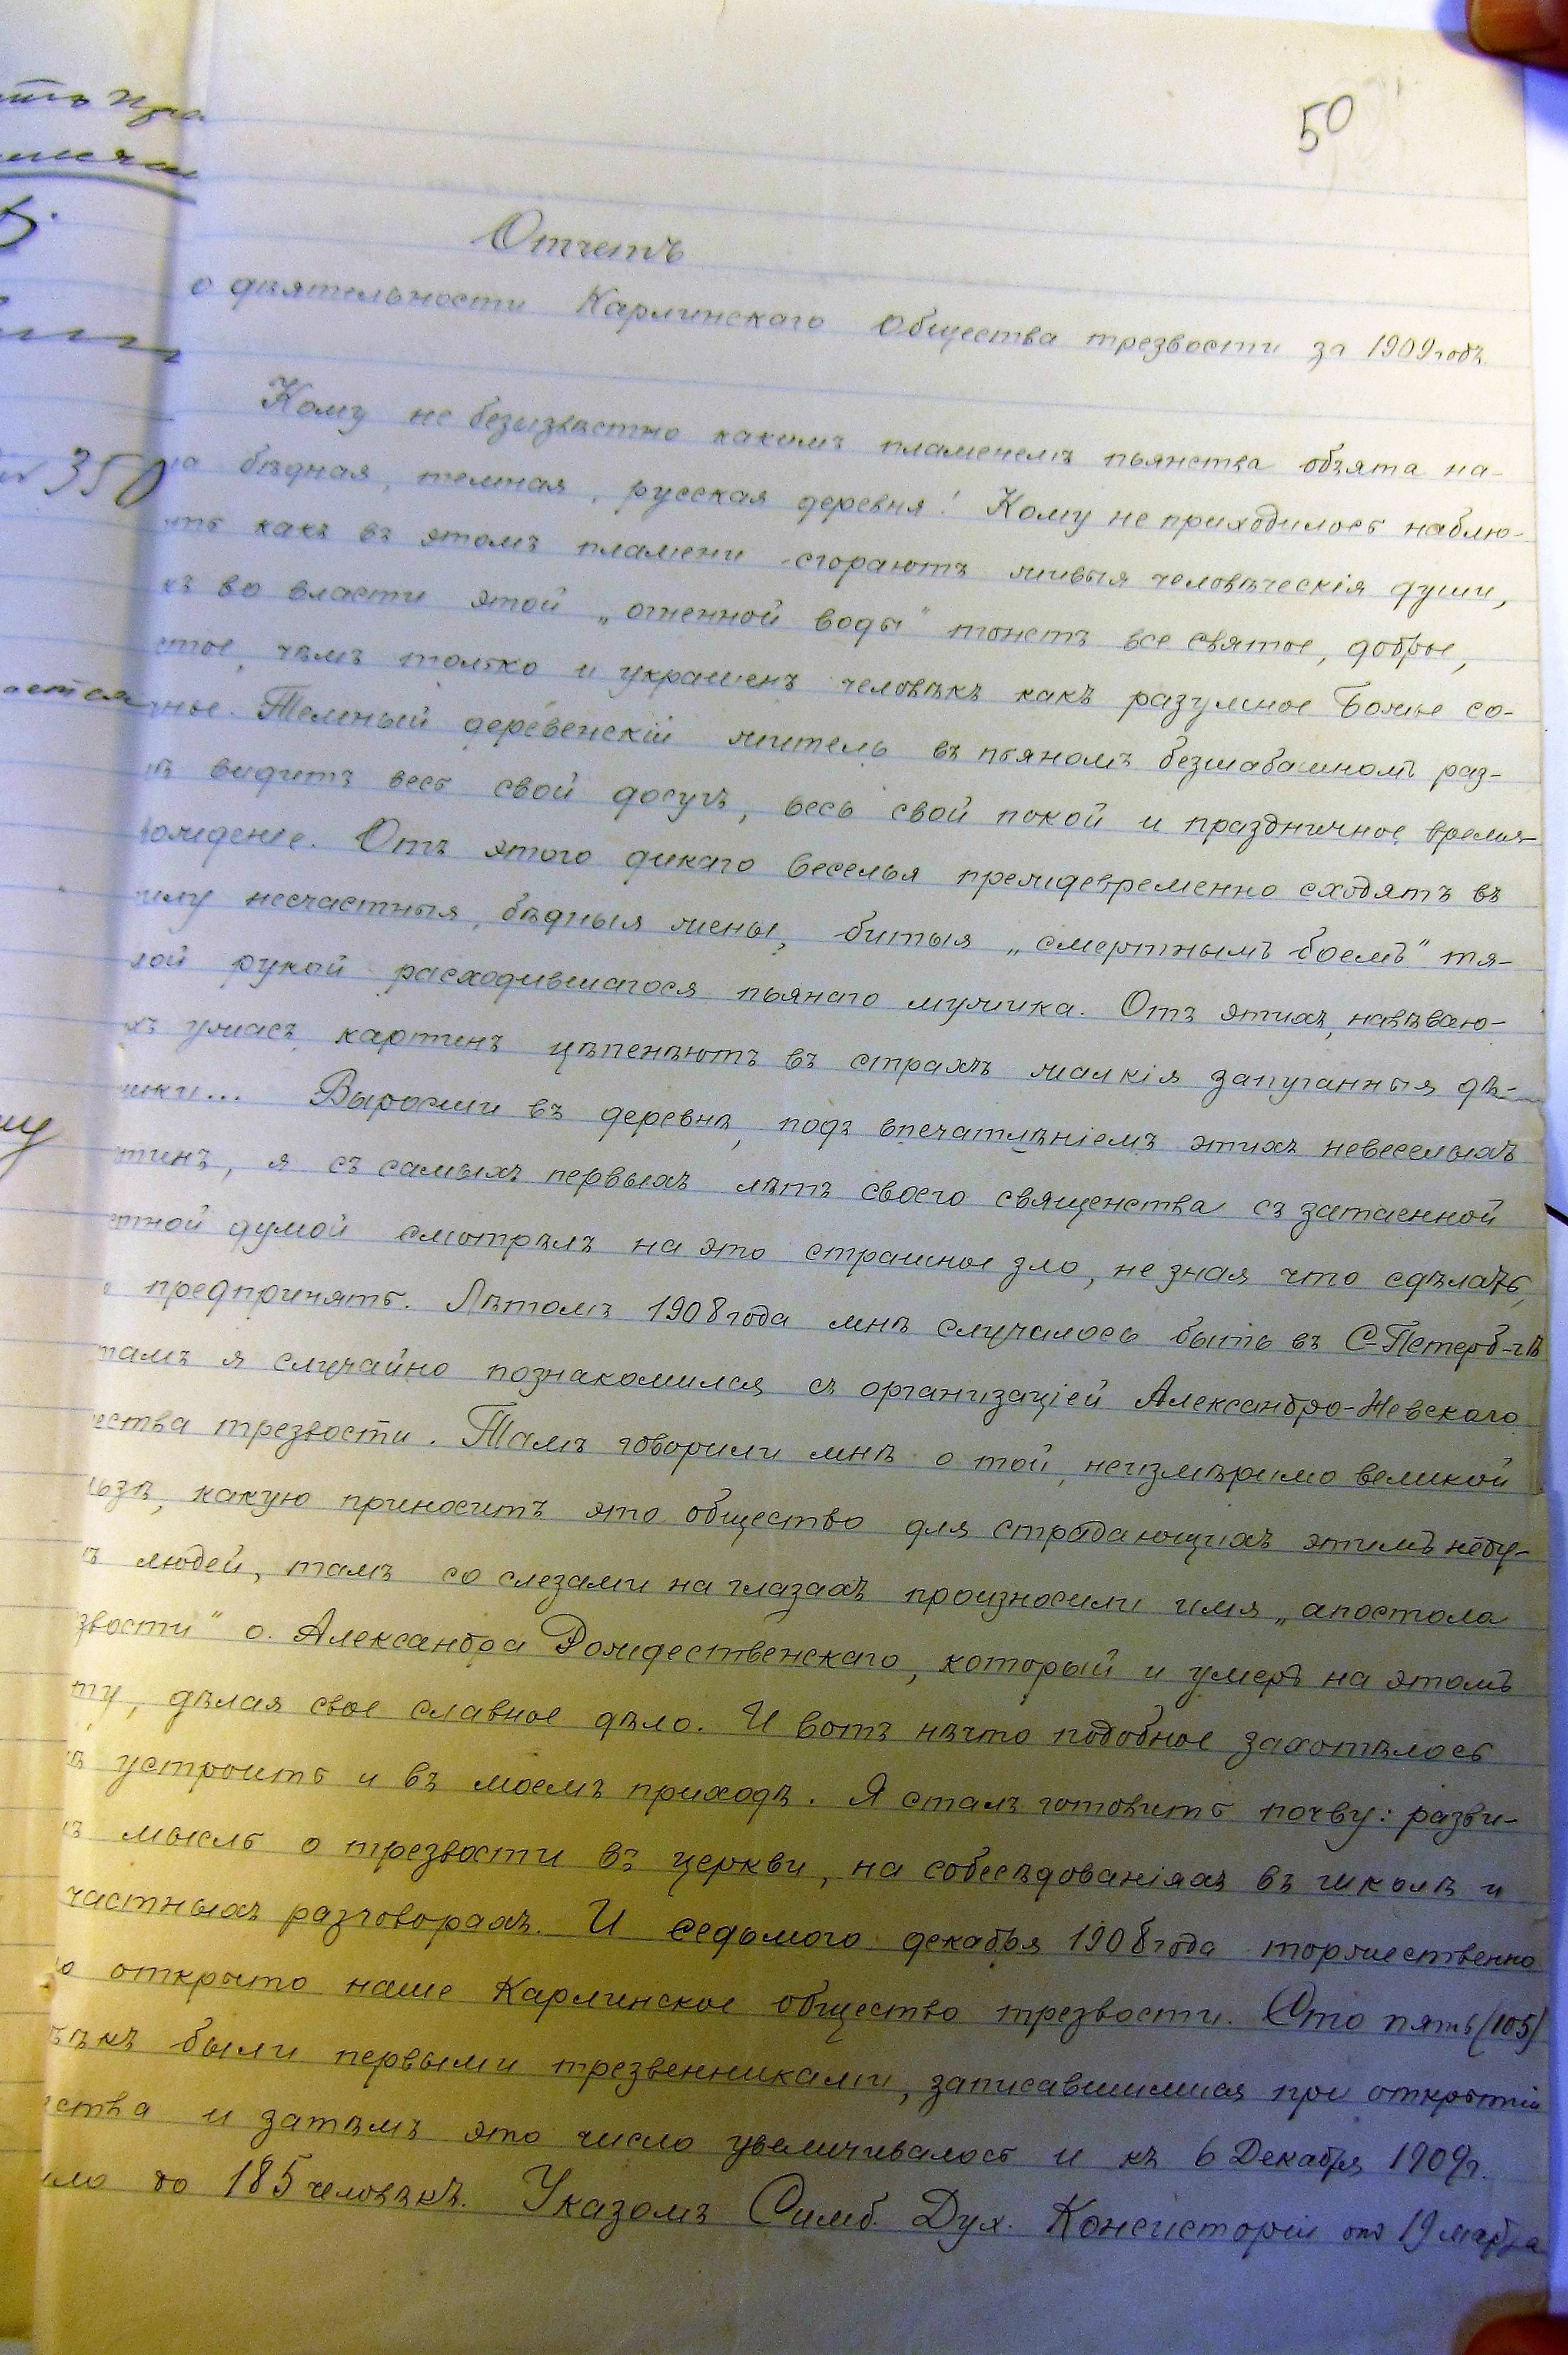 50
Отчетъ
о дѣятельности Карлинскаго Общества трезвости за 1909 годъ.
Кому не безызвѣстно какимъ пламенемъ пьянства объята на-
бѣдная, темная, русская деревня! Кому не приходилось наблю-
какъ въ этомъ пламени сгораютъ живыя человѣческія души,
во власти этой „огненной воды" тонетъ все святое, доброе,
стое, чѣмъ только и украшенъ человѣкъ какъ разумное Божье со-
ные. Темный деревенскій житель въ пьяномъ безшабашномъ раз-
видитъ весь свой досугъ, весь свой покой и праздничное время-
вожденіе. Отъ этого дикаго веселья преждевременно сходятъ въ
гилу несчастныя, бѣдныя жены, битыя „смертнымъ боемъ" тя-
лой рукой расходившагося пьянаго мужика. Отъ этихъ, навѣваю-
хъ ужасъ, картинъ цѣпенѣютъ въ страхѣ жалкія запуганныя дѣ-
ишки... Выросши въ деревнѣ, подъ впечатлѣніемъ этихъ невеселыхъ
тинъ, я съ самыхъ первыхъ лѣтъ своего священства съ затаенной
стной думой смотрѣлъ на это страшное зло, не зная что сдѣлать,
предпринять. Лѣтомъ 1908 года мнѣ случалось быть въ С-Петерб-гѣ
тамъ я случайно познакомился съ организаціей Александро-Невскаго
ества трезвости. Тамъ говорили мнѣ о той, неизмѣримо великой
льзѣ, какую приноситъ это общество для страдающихъ этимъ неду-
людей, тамъ со слезами на глазахъ произносили имя „апостола
звости" о. Александра Рождественскаго, который и умеръ на этомъ
ту, дѣлая свое славное дѣло. И вотъ нѣчто подобное захотѣлось
устроить и въ моемъ приходѣ. Я сталъ готовить почву: разви-
мысль о трезвости въ церкви, на собесѣдованіяхъ въ школѣ и
частныхъ разговорахъ. И седьмого декабря 1908 года торжественно
ло открыто наше Карлинское общество трезвости. Сто пять (105)
вѣкъ были первыми трезвенниками, записавшимися при открытіи
ества и затѣмъ это число увеличивалось и къ 6 Декабря 1909 г.
до 185 человѣкъ. Указомъ Симб. Дух. Консисторіи отъ 19 марта
350
ается